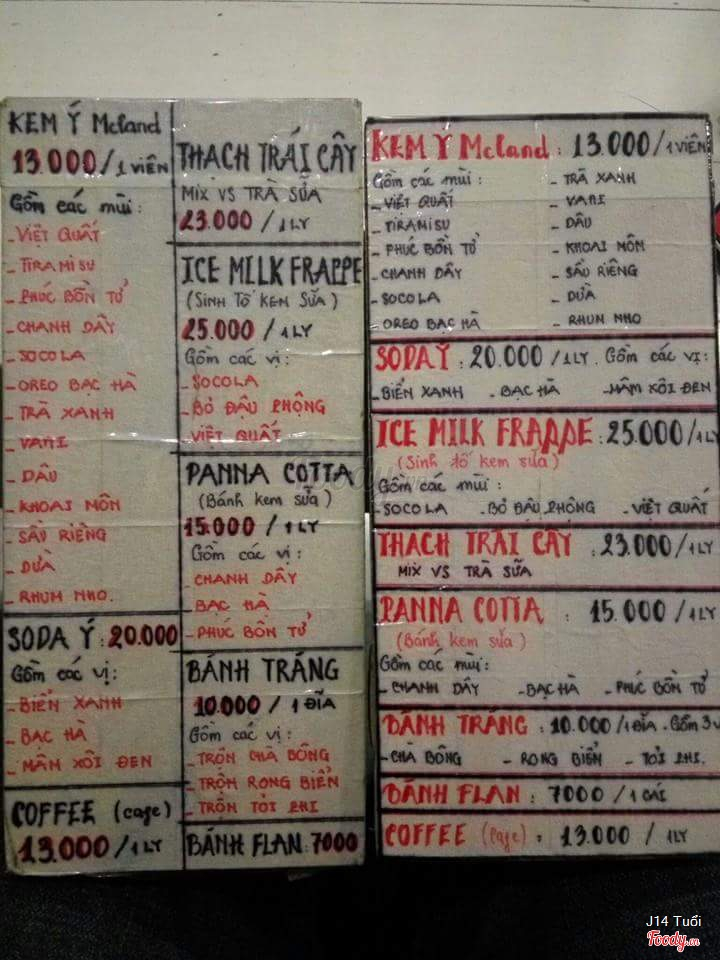 KEM Ý McLand
13.000/1 VIÊN
Gồm các mùi :
- VIỆT QUẤT
- TIRAMISU
- PHÚC BỒN TỬ
- CHANH DÂY
- SOCOLA
- OREO BẠC HÀ
- TRÀ XANH
- VANI
- DÂU
- KHOAI MÔN
- SẦU RIÊNG
- DỪA
- RHUM NHO.
SODA Ý : 20.000
Gồm các vị :
- BIỂN XANH
- BẠC HÀ
- MÂM XÔI ĐEN
COFFEE (cafe)
13.000/1 LY
THẠCH TRÁI CÂY
MIX VS TRÀ SỮA
23.000 / 1 LY
ICE MILK FRAPPE
(Sinh Tố KEM SỮA)
25.000 / 1 LY
Gồm các vị :
- SOCOLA
- BƠ ĐẬU PHỘNG
- VIỆT QUẤT
PANNA COTTA
(Bánh kem sữa)
15.000 / 1 LY
Gồm các vị :
- CHANH DÂY
- BẠC HÀ
- PHÚC BỒN TỬ
BÁNH TRÁNG
10.000 / 1 ĐĨA
Gồm các vị :
- TRỘN CHÀ BÔNG
- TRỘN RONG BIỂN
- TRỘN TỎI PHI
BÁNH FLAN : 7000
KEM Ý McLand : 13.000/1 VIÊN
Gồm các mùi : - TRÀ XANH
- VIỆT QUẤT - VANI
- TIRAMISU - DÂU
- PHÚC BỒN TỬ - KHOAI MÔN
- CHANH DÂY - SẦU RIÊNG
- SOCOLA - DỪA
- OREO BẠC HÀ - RHUM NHO
SODA Ý : 20.000 /1 LY . Gồm các vị :
- BIỂN XANH - BẠC HÀ - MÂM XÔI ĐEN
ICE MILK FRAPPE : 25.000/1 LY
(Sinh tố kem sữa)
Gồm các mùi :
- SOCOLA - BƠ ĐẬU PHỘNG - VIỆT QUẤT
THẠCH TRÁI CÂY : 23.000/1 LY
MIX VS TRÀ SỮA
PANNA COTTA : 15.000 /1 LY
(Bánh kem sữa)
Gồm các mùi :
- CHANH DÂY - BẠC HÀ - PHÚC BỒN TỬ
BÁNH TRÁNG : 10.000/1 ĐĨA . Gồm 3 v
- CHÀ BÔNG - RONG BIỂN - TỎI PHI .
BÁNH FLAN : 7000 / 1 CÁI
COFFEE (cafe) : 13.000 / 1 LY
J14 Tuổi
Foody.vn